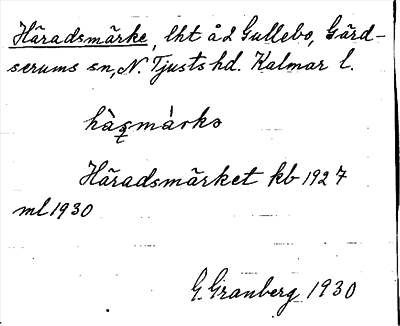 Häradsmärke, lht å 2 Gullebo, Gärd-
serums sn, N. Tjusts hd. Kalmar l.
Häradsmärket kb 1927
ml 1930
G. Granberg 1930